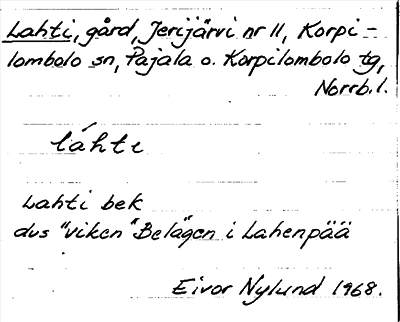 Lahti, gård, Jerijärvi nr 11, Korpi-
lombolo sn, Pajala o. Korpilombolo tg,
Norrb. l.
láhte
Lahti bek
dvs "viken" Belägen i Lahenpää
Eivor Nylund 1968.